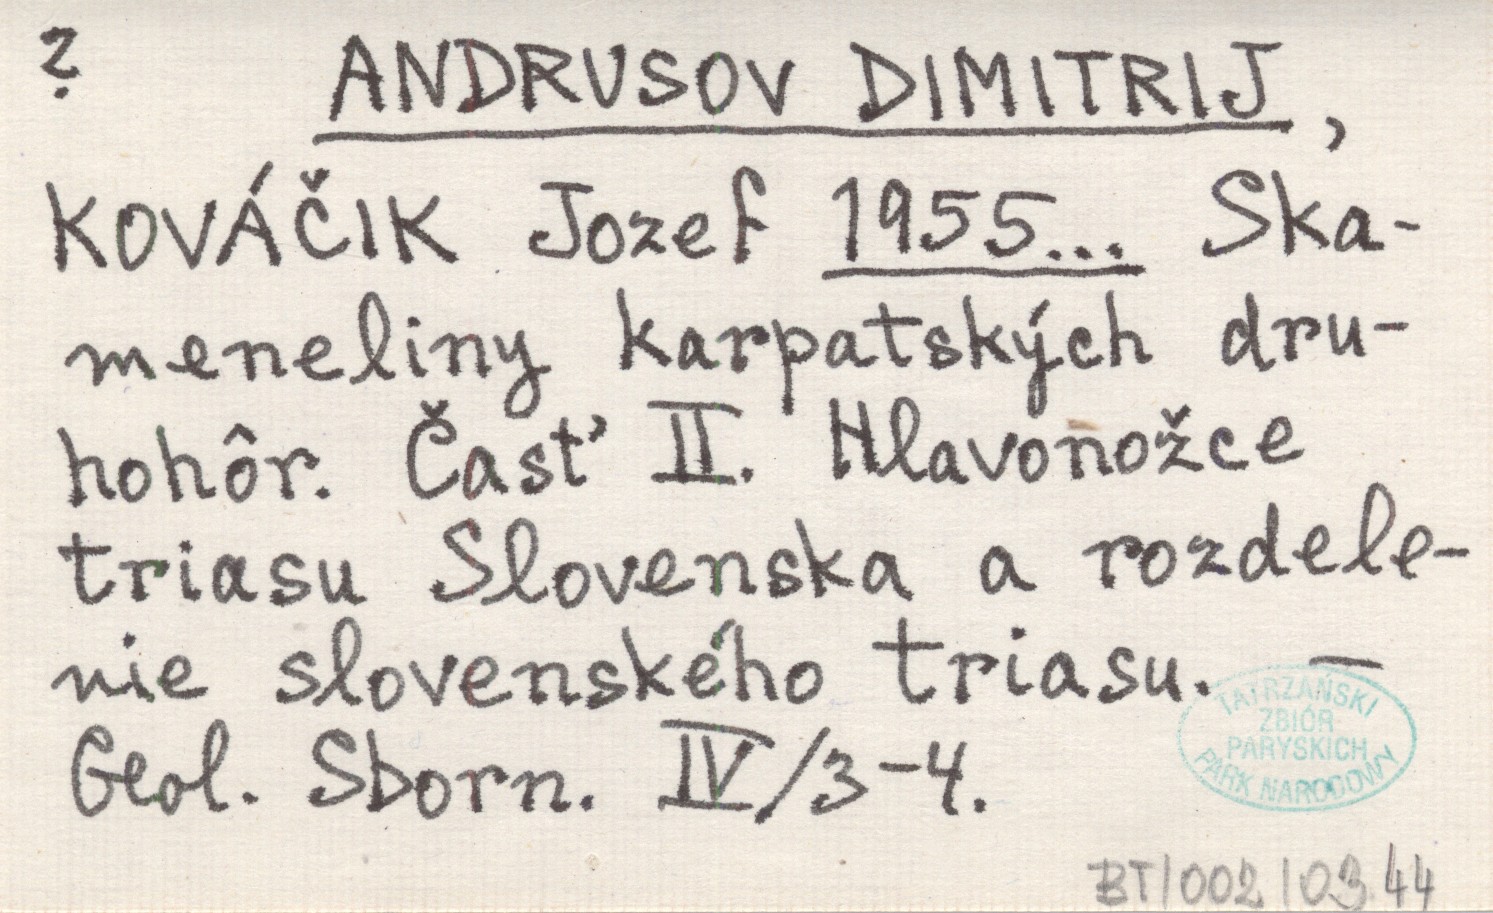 ?
ANDRUSOV DIMITRIJ,
KOVÁČIK Jozef 1955... Ska-
meneliny karpatských dru-
hohôr. Časť II. Hlavonožce
triasu Slovenska a rozdele-
nie slovenského triasu. —
Geol. Sborn. IV/3-4.
TATRZAŃSKI
ZBIÓR
PARYSKICH
PARK NARODOWY
BT/002/03.44